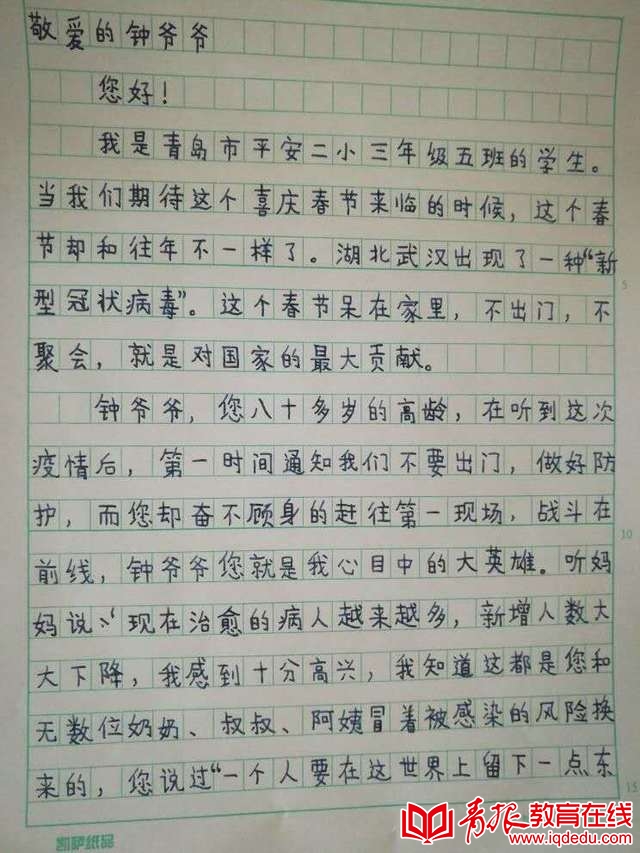 敬爱的钟爷爷
您好!
我是青岛市平安二小三年级五班的学生。
当我们期待这个喜庆春节来临的时候，这个春
节却和往年不一样了。湖北武汉出现了一种“新
型冠状病毒”。这个春节呆在家里，不出门，不
聚会，就是对国家的最大贡献。
钟爷爷，您八十多岁的高龄，在听到这次
疫情后，第一时间通知我们不要出门，做好防
护，而您却奋不顾身的赶往第一现场，战斗在
前线，钟爷爷您就是我心目中的大英雄。听妈
妈说：“现在治愈的病人越来越多，新增人数大
大下降，我感到十分高兴，我知道这都是您和
无数位奶奶、叔叔、阿姨冒着被感染的风险换
来的，您说过“一个人要在这世界上留下一点东
5
10
15
青报教育在线
www.iqdedu.com